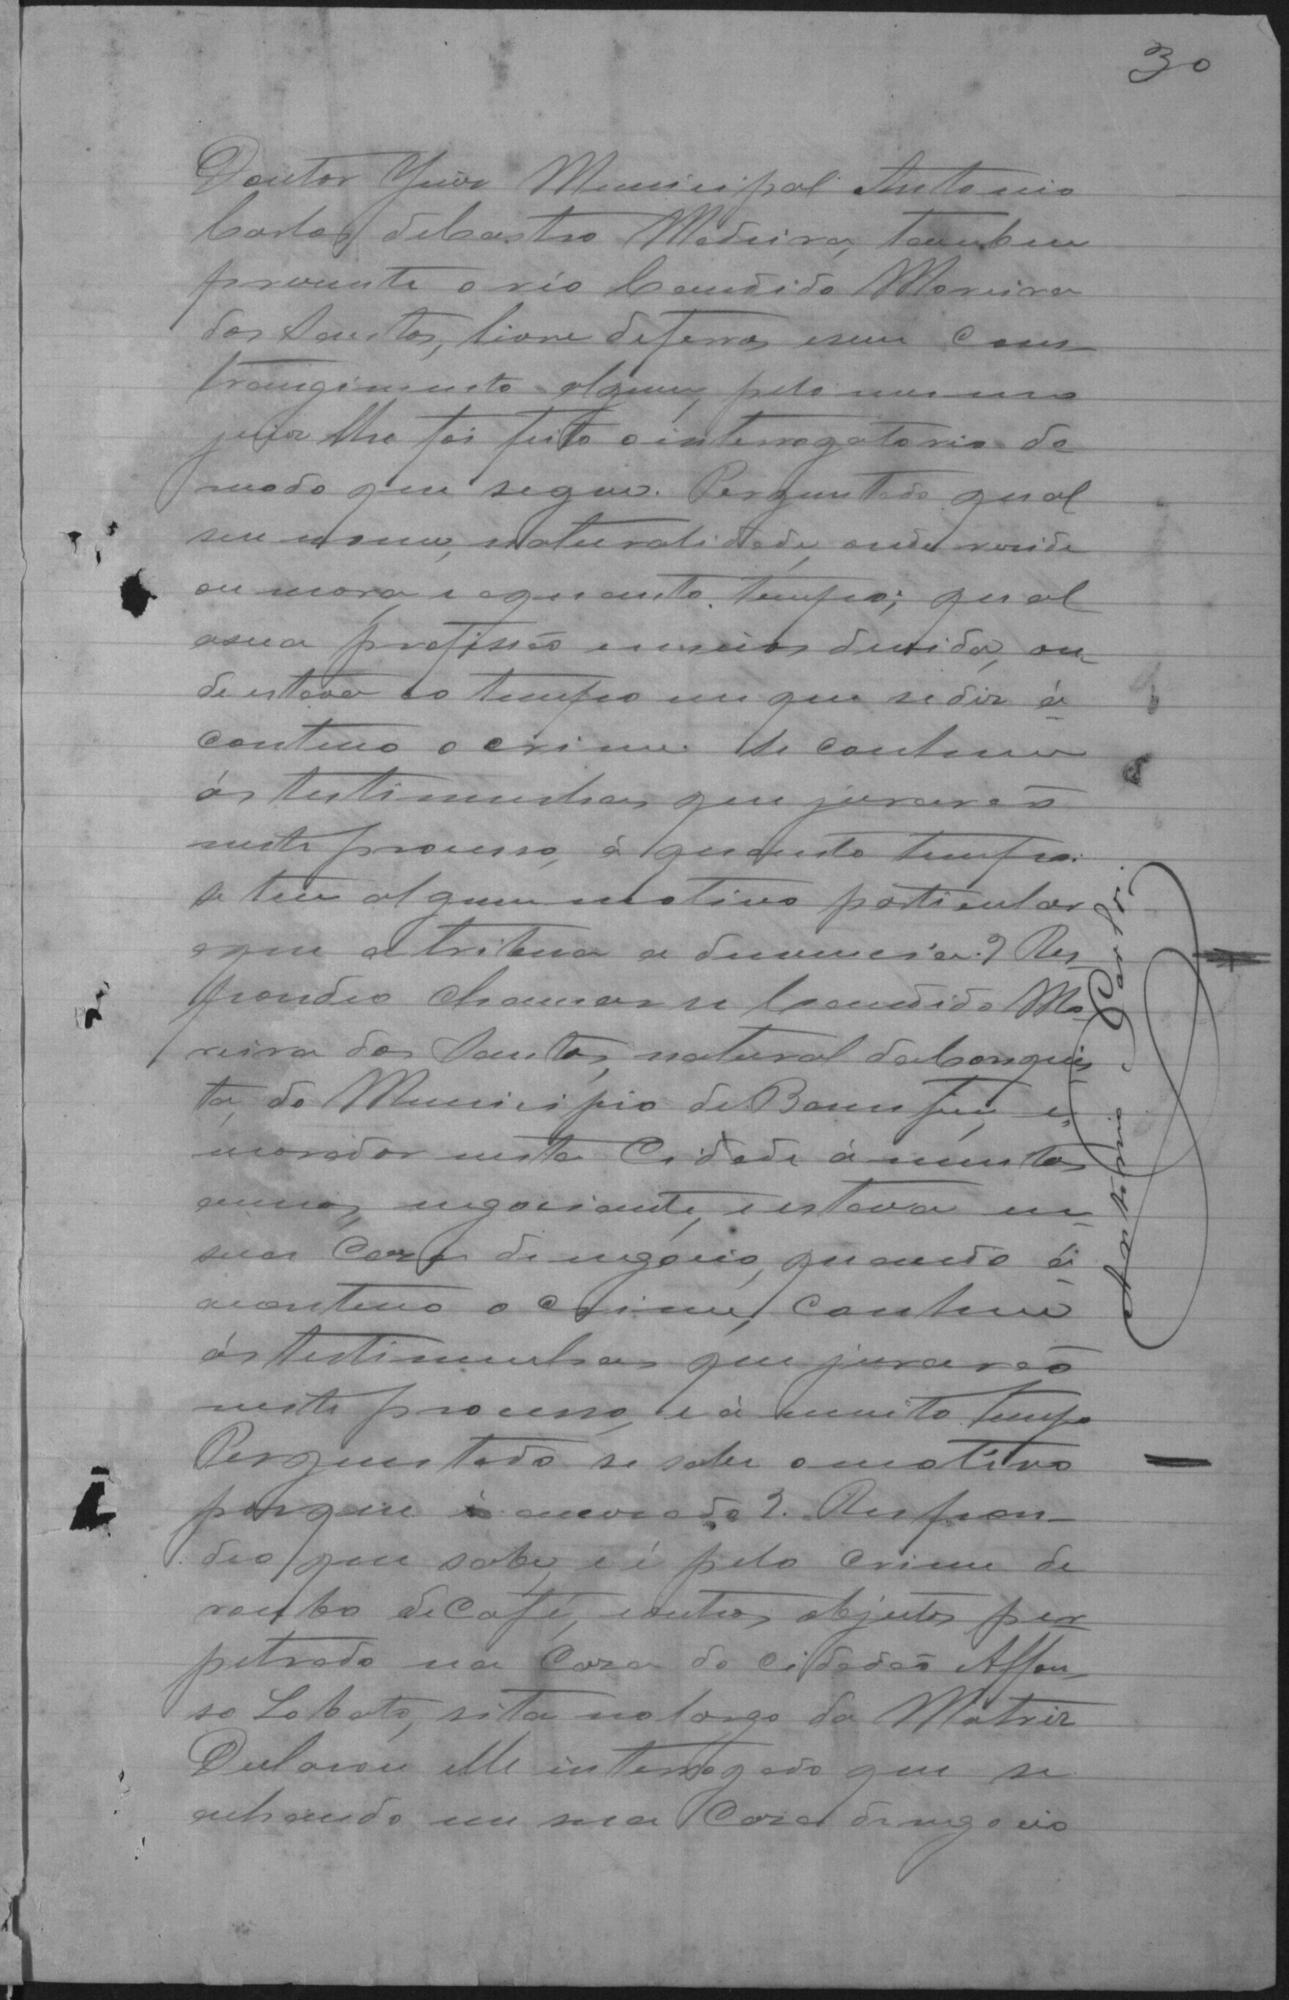 30
Doutor Juiz Municipal Antonio
Carlos de Castro Madeira, tambem
prezente o réo Candido Moreira
dos Santos, livre de ferros e sem cons-
trangimento algum, pelo mesmo
juiz lhe foi feito o interrogatorio do
modo que segue. Perguntado qual
seu nome, naturalidade, onde reside
ou mora, e a quanto tempo; qual
a sua profissão e meios de vida, on-
de estava ao tempo em que se diz a-
conteceo o crime. Se conhece
ás testimunhas que jurarão
neste processo, á quanto tempo.
se tem algum motivo particular
a que attribua a denuncia? Res-
pondeo chamar se Candido Mo-
reira dos Santos, natural da Conquis-
ta, do Municipio de Bomfim, e
morador nesta Cidade á muitos
annos, negociante, e estava em
sua Caza de negocio, quando á
aconteceo o crime, conhece
ás testimunhas que jurarão
neste processo, e á muito tempo
Perguntado se sabe o motivo
porque é accusado? Respon-
deo que sabe, e é pelo crime de
roubo de Café, e outros objectos per
petrado na Caza do cidadão Affon-
so Lobato, sita no largo da Matriz
Declarou elle interrogado que se
achando em sua Caza de negocio
Antonio Carlos.